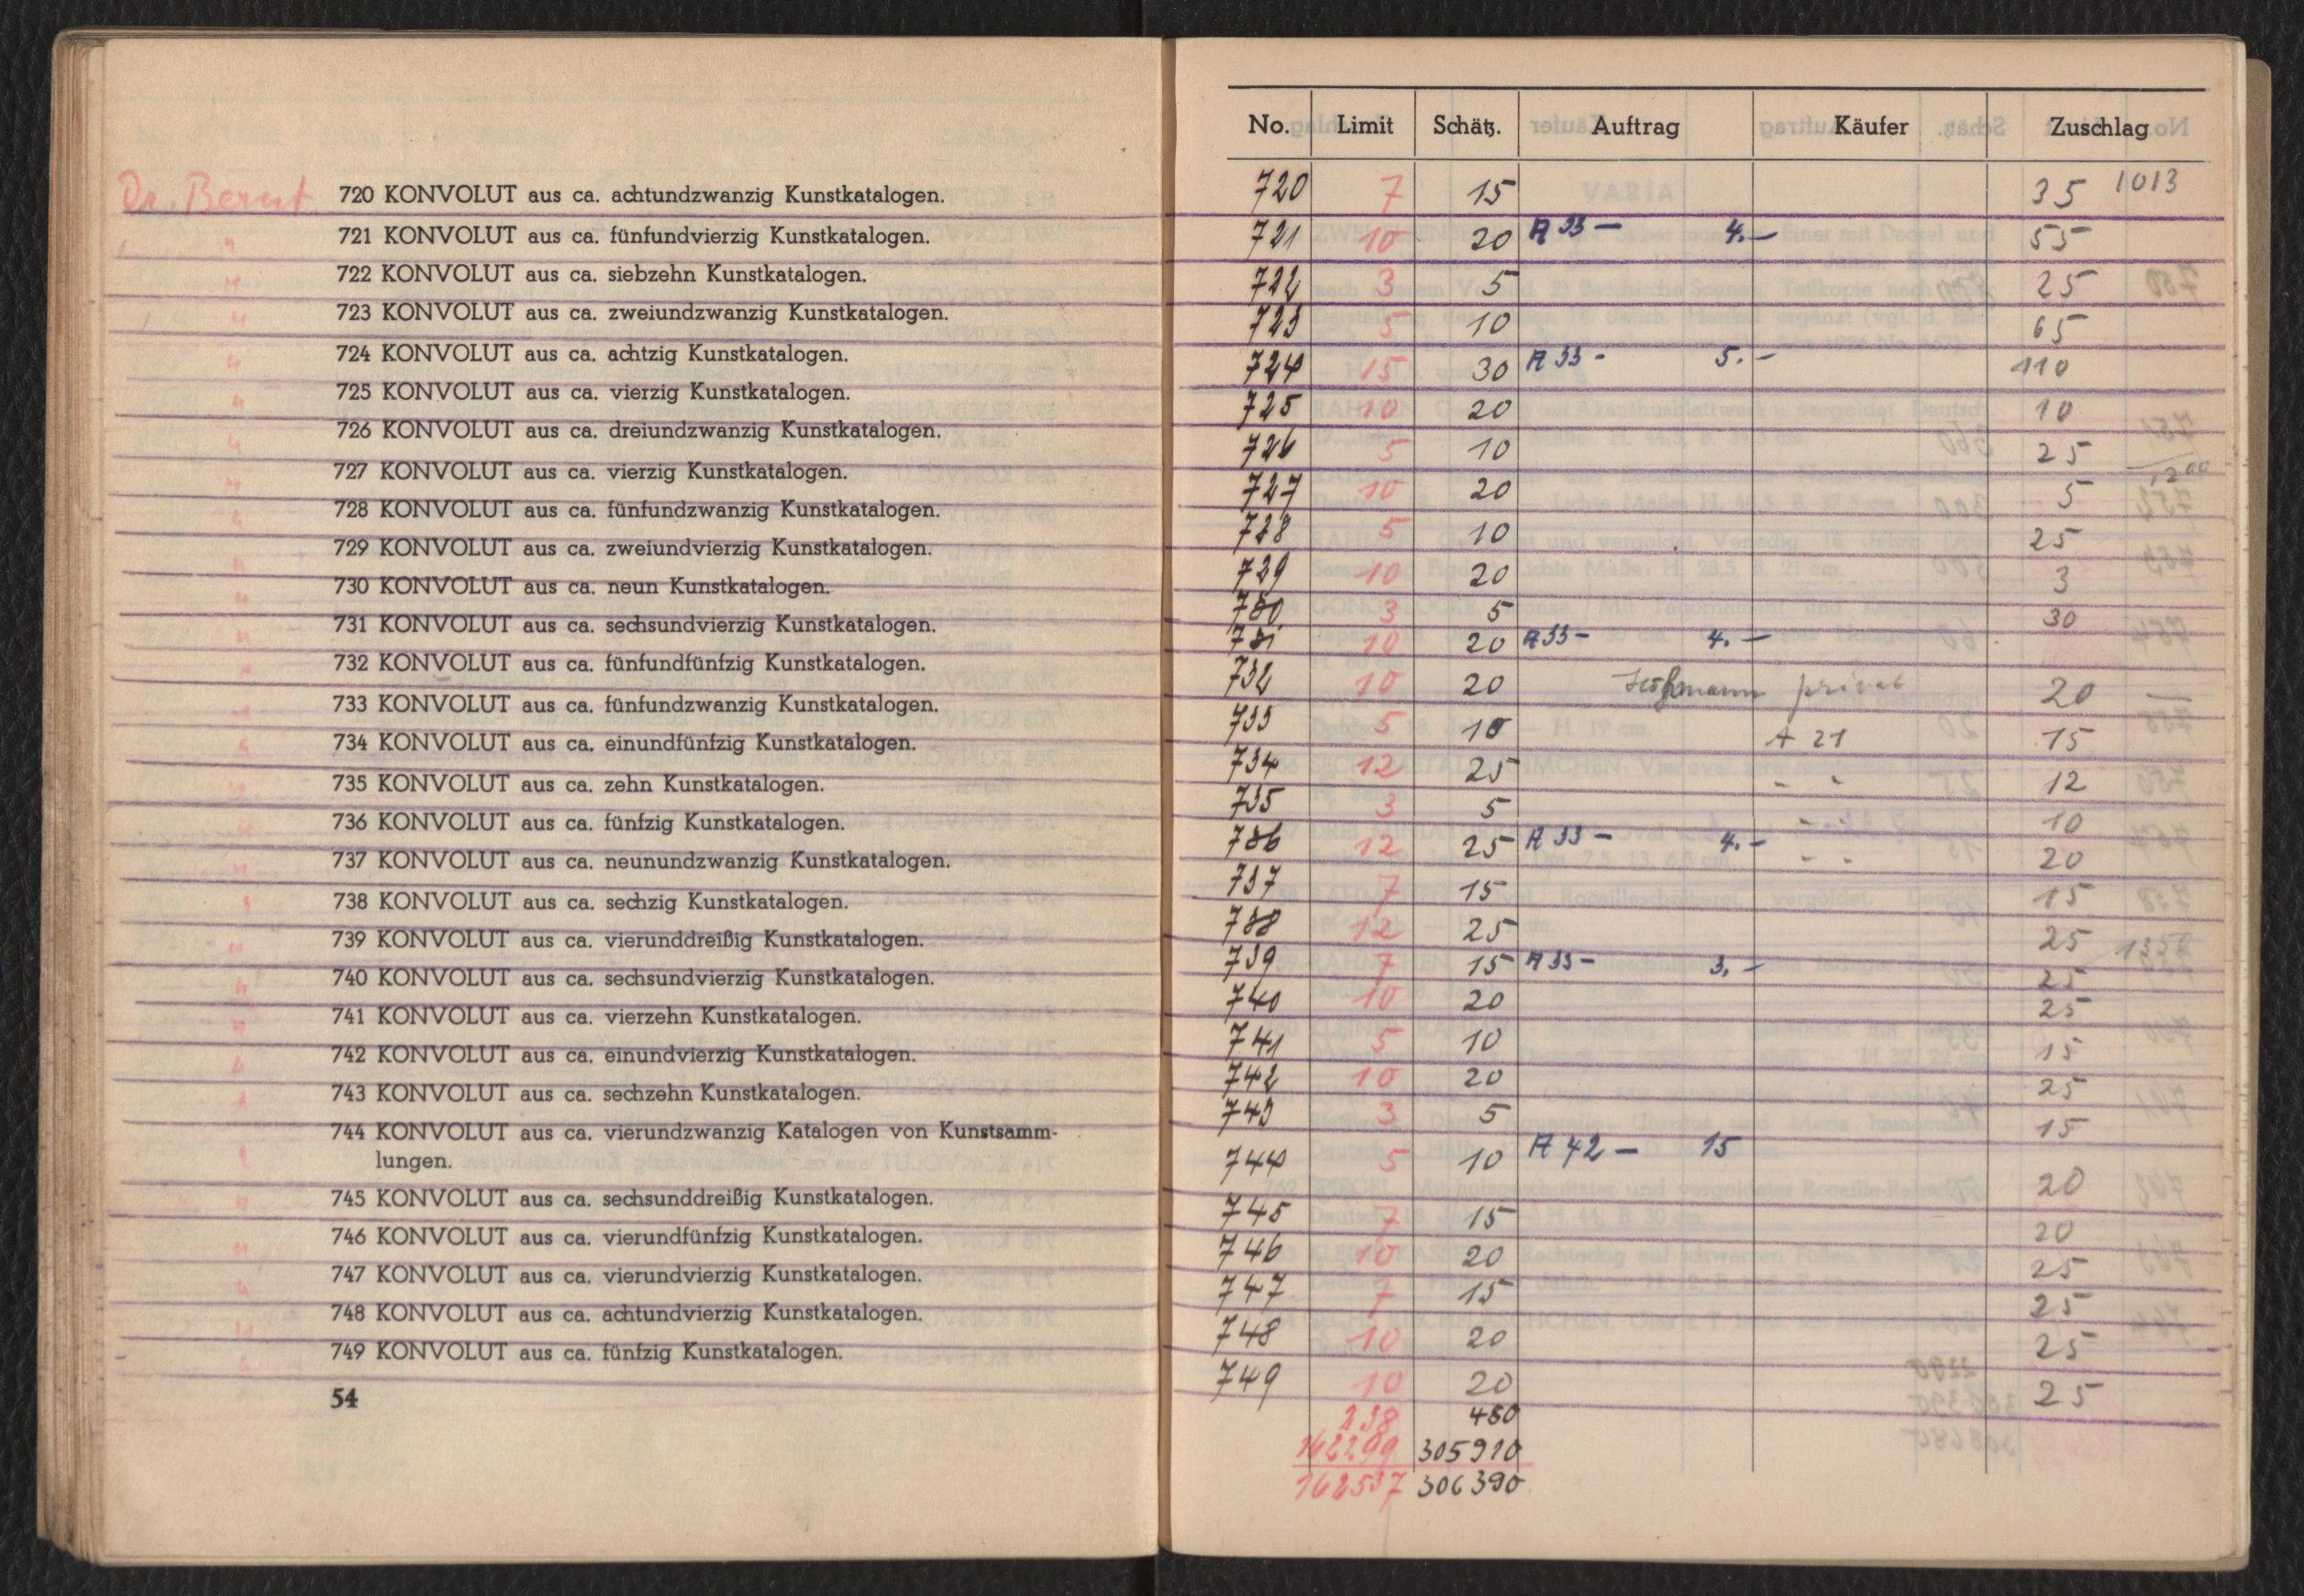 Dr. Berent 720 KONVOLUT aus ca. achtundzwanzig Kunstkatalogen.
" 721 KONVOLUT aus ca. fünfundvierzig Kunstkatalogen.
" 722 KONVOLUT aus ca. siebzehn Kunstkatalogen.
" 723 KONVOLUT aus ca. zweiundzwanzig Kunstkatalogen.
" 724 KONVOLUT aus ca. achtzig Kunstkatalogen.
" 725 KONVOLUT aus ca. vierzig Kunstkatalogen.
" 726 KONVOLUT aus ca. dreiundzwanzig Kunstkatalogen.
" 727 KONVOLUT aus ca. vierzig Kunstkatalogen.
" 728 KONVOLUT aus ca. fünfundzwanzig Kunstkatalogen.
" 729 KONVOLUT aus ca. zweiundvierzig Kunstkatalogen.
" 730 KONVOLUT aus ca. neun Kunstkatalogen.
" 731 KONVOLUT aus ca. sechsundvierzig Kunstkatalogen.
" 732 KONVOLUT aus ca. fünfundfünfzig Kunstkatalogen.
" 733 KONVOLUT aus ca. fünfundzwanzig Kunstkatalogen.
" 734 KONVOLUT aus ca. einundfünfzig Kunstkatalogen.
" 735 KONVOLUT aus ca. zehn Kunstkatalogen.
" 736 KONVOLUT aus ca. fünfzig Kunstkatalogen.
" 737 KONVOLUT aus ca. neunundzwanzig Kunstkatalogen.
" 738 KONVOLUT aus ca. sechzig Kunstkatalogen.
" 739 KONVOLUT aus ca. vierunddreißig Kunstkatalogen.
" 740 KONVOLUT aus ca. sechsundvierzig Kunstkatalogen.
" 741 KONVOLUT aus ca. vierzehn Kunstkatalogen.
" 742 KONVOLUT aus ca. einundvierzig Kunstkatalogen.
" 743 KONVOLUT aus ca. sechzehn Kunstkatalogen.
" 744 KONVOLUT aus ca. vierundzwanzig Katalogen von Kunstsamm-
lungen.
" 745 KONVOLUT aus ca. sechsunddreißig Kunstkatalogen.
" 746 KONVOLUT aus ca. vierundfünfzig Kunstkatalogen.
" 747 KONVOLUT aus ca. vierundvierzig Kunstkatalogen.
" 748 KONVOLUT aus ca. achtundvierzig Kunstkatalogen.
" 749 KONVOLUT aus ca. fünfzig Kunstkatalogen.
54
No. Limit Schätz. Auftrag Käufer Zuschlag
720 7 15 35 1013
721 10 20 A 33 — 4.— 55
722 3 5 25
723 5 10 65
724 15 30 A 33 - 5.- 110
725 10 20 10
726 5 10 25
727 10 20 5
728 5 10 25
729 10 20 3
730 3 5 30
731 10 20 A 33 - 4.—
732 10 20 privat 20
733 5 10 A 21 15
734 12 25 " " 12
735 3 5 " " 10
736 12 25 A 33 — 4.— " " 20
737 7 15 15
738 12 25 25
739 7 15 A 33 - 3.- 25
740 10 20 25
741 5 10 15
742 10 20 25
743 3 5 15
744 5 10 A 42 — 15 20
745 7 15 20
746 10 20 25
747 7 15 25
748 10 20 25
749 10 20 25
238 480
162299 305910
162537 306390